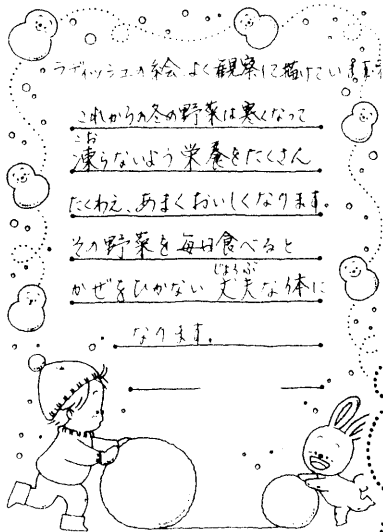 ラディッシュの絵 よく観察して描けています
これからの冬の野菜は寒くなって
こお
凍らないよう栄養をたくさん
たくわえ、あまくおいしくなります。
その野菜を毎日食べると
じょうぶ
かぜをひかない 丈夫な体に
なります。